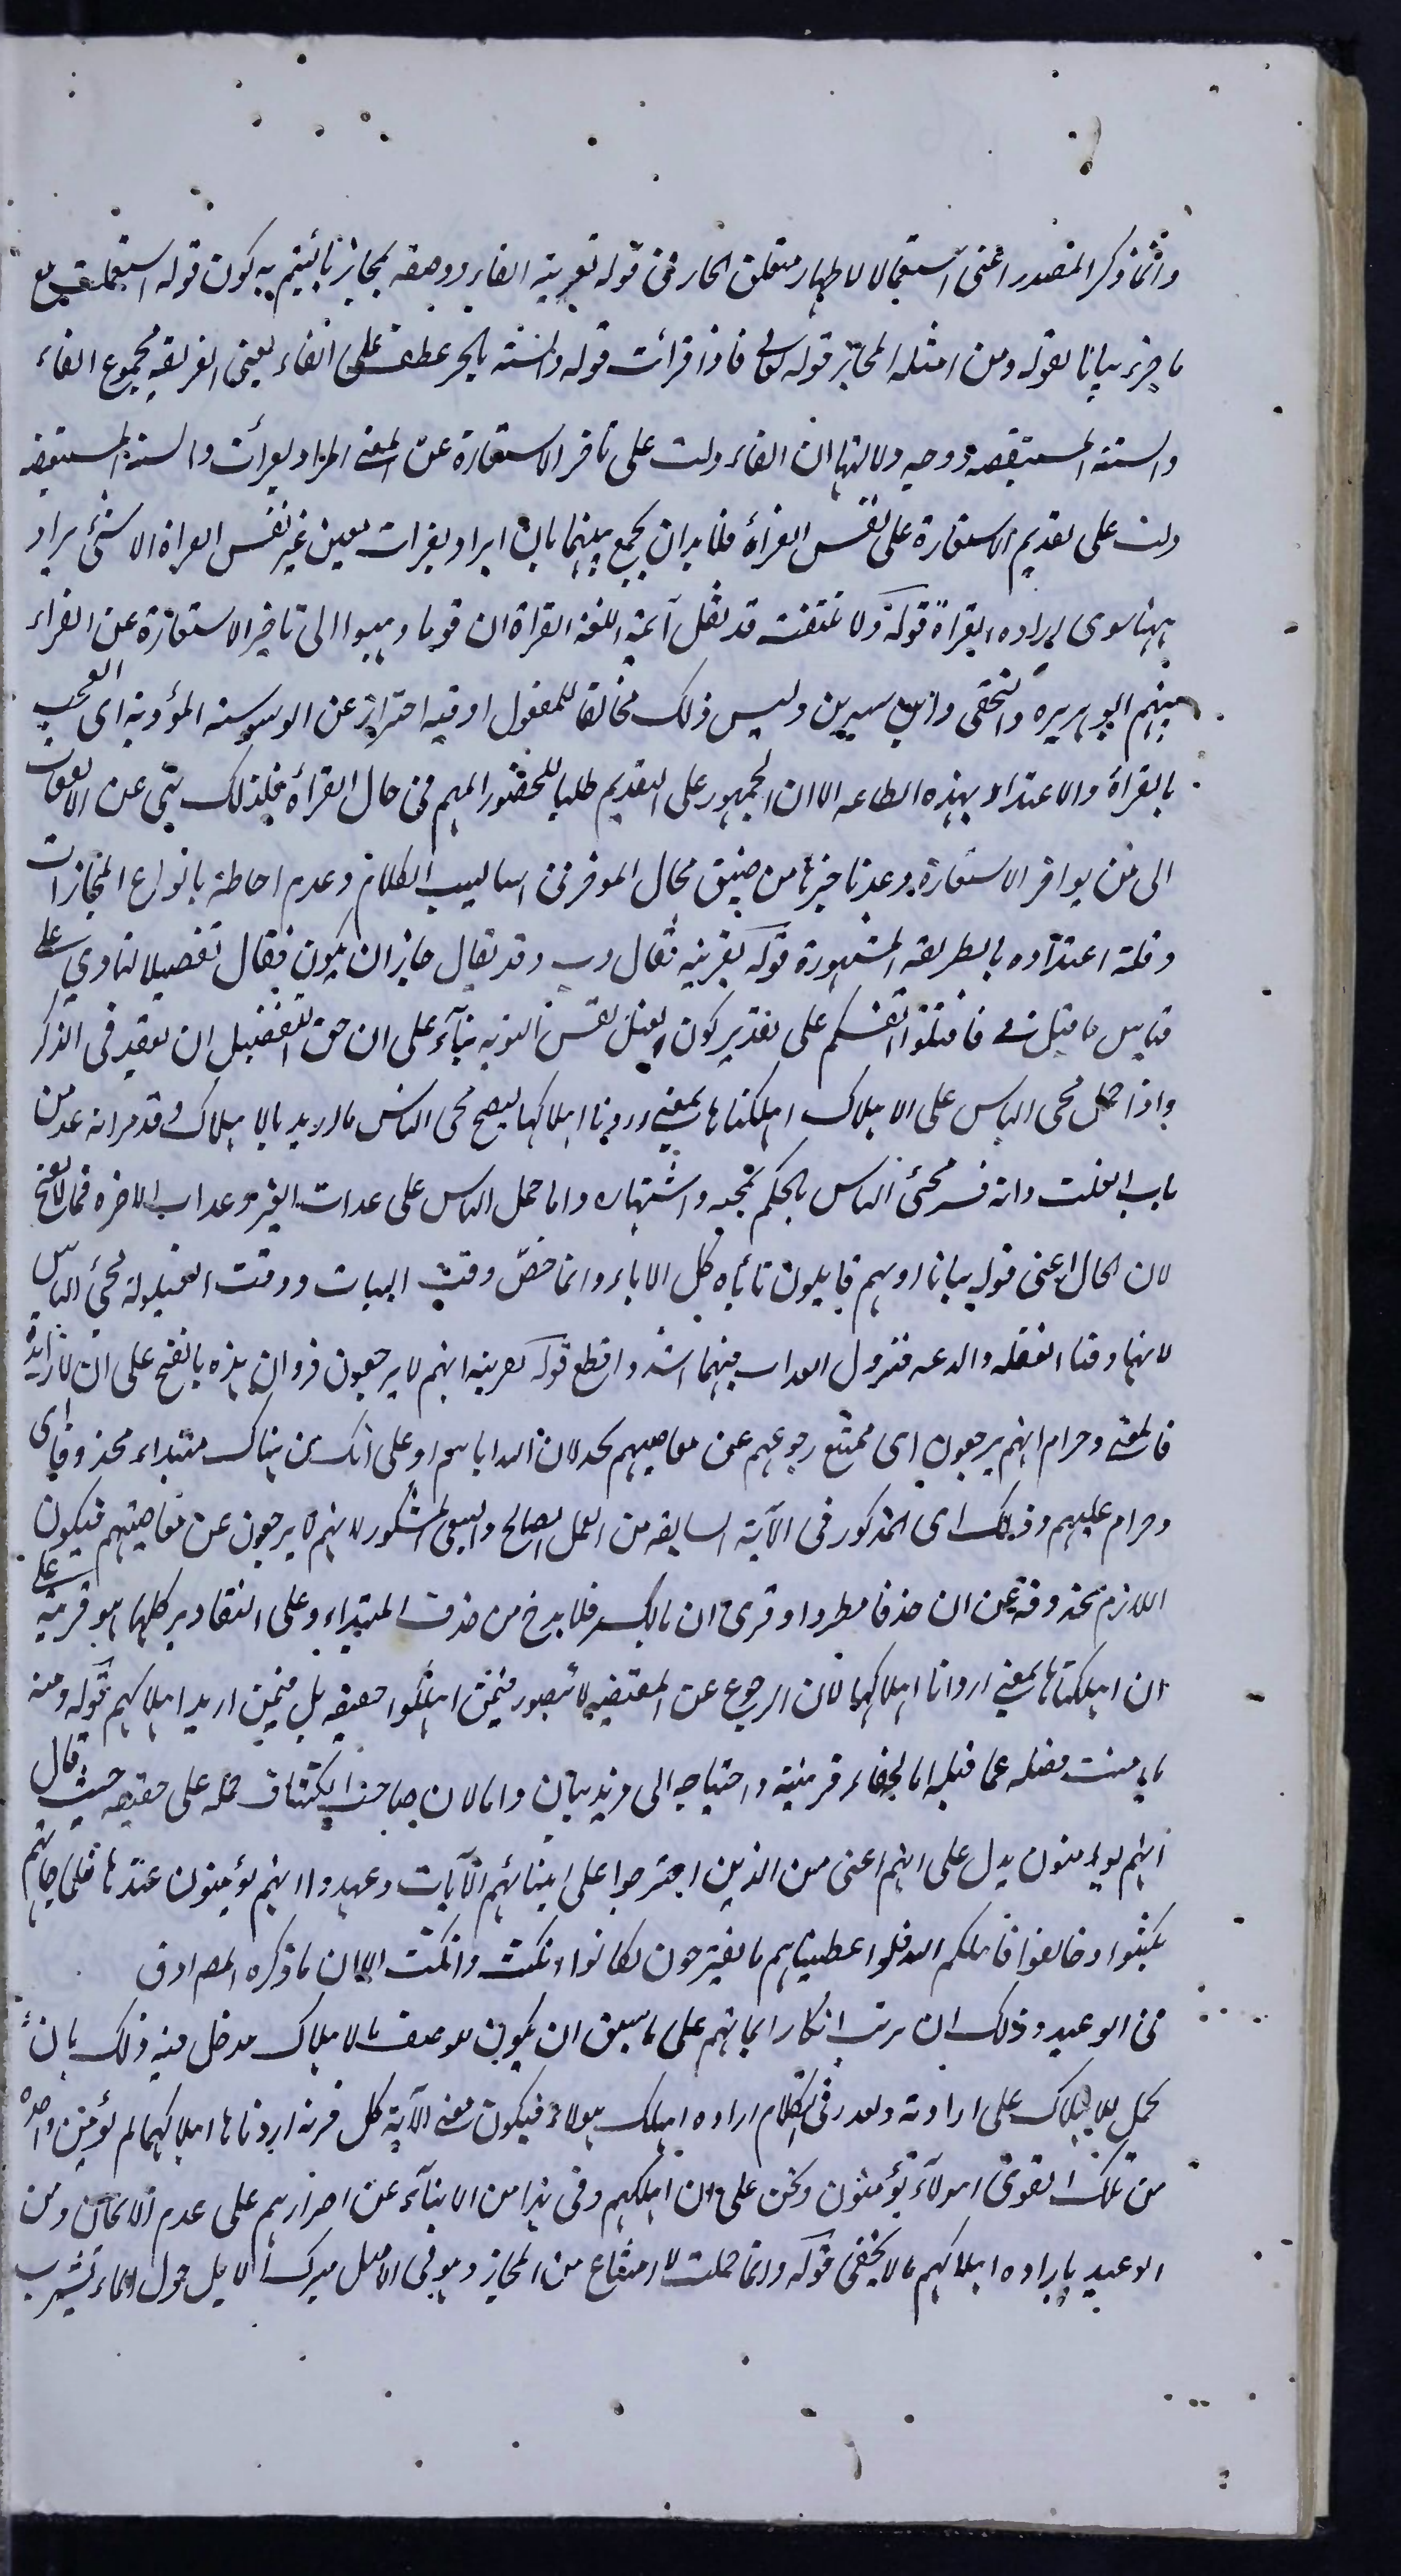 وانما ذكر المصدر اعنى استعمالا لاظهار متعلق الجار فى قوله بقرينة الفاء ووصفه بمجاز يائيتم به كون قوله استعملت مع
ما فى حيزه بيانا لقوله ومن امثلة المجاز قوله تعالى فاذا قرأت قوله والسنة بالجر عطف على الفاء يعنى القرينة مجموع الفاء
والسنة المستفيضة ووجه دلالتها ان الفاء دلت على تاخر الاستعاذة عن المعنى المراد بقرأت والسنة المستفيضة
دلت على تقديم الاستعاذة على نفس القرأة فلا بد ان يجمع بينهما بان يراد بقرأت معنى غير نفس القراة الا شئ يراد
ههنا سوى ارادة القراة قوله ولا تلتفت قد نقل ائمة اللغة القراة ان قوما ذهبوا الى تاخير الاستعاذة عن القراءة
منهم ابو هريرة والنخعى وابن سيرين وليس ذلك مخالفا للمعقول اذ فيه احتراز عن الوسوسة المؤدية الى العجب
بالقرأة والاعتداد بهذه الطاعة الا ان الجمهور على التقديم طلبا للحضور المهم فى حال القرأة فلذلك نهى عن الالتفات
الى من يؤخر الاستعاذة وعد تاخيرها من ضيق مجال المؤخر فى اساليب الكلام وعدم احاطته بانواع المجازات
وقلة اعتداده بالطريقة المشهورة قوله بقرينة فقال رب وقد يقال جاز ان يكون فقال تفصيلا لنادى على
قياس ما قيل فى فاقتلوا انفسكم على تقدير كون القتل نفس التوبة بناء على ان حق التفصيل ان يعقب فى الذكر
واذا حمل مجئ الباس على الاهلاك اهلكناها بمعنى اردنا اهلاكها ليصح مجئ الباس مالاريد بالاهلاك وقد مر انه عد من
باب القلب وانه فسر مجئ الباس بالحكم بمجيئه واشتهاره واما حمل الباس على عذاب القبر وعذاب الاخرة فمما لا يصح
لان الحال اعنى قوله بياتا او هم قايلون تأباه كل الاباء وانما خص وقت البيات ووقت القيلولة لمجئ الباس
لانهما وقتا الغفلة والدعة فنزول العذاب فيهما اشد وافظع قوله بقرينة انهم لا يرجعون قرئ ان هذه بالفتح على ان لا زايدة
فالمعنى وحرام انهم يرجعون اى ممتنع رجوعهم عن معاصيهم لخذلان الله اياهم او على ان هناك مبتداء محذوفا اى
وحرام عليهم وذلك اى المذكور فى الآية السابقة من العمل الصالح والسعى المشكور لانهم لا يرجعون عن معاصيهم فيكون
اللازم محذوفة عن ان حذفا مطردا وقرئ ان بالكسر فلا بد ح من حذف المبتداء وعلى التقادير كلها هو قرينة على
ان اهلكناها بمعنى اردنا اهلاكها لان الرجوع عن المعصية لا يتصور فيمن اهلكوا حقيقة بل فيمن اريد اهلاكهم قوله ومنه
ما امنت فصله عما قبله اما لخفاء قرينته واحتياجه الى مزيد بيان واما لان صاحب الكشاف حمله على حقيقته حيث قال
افهم يؤمنون يدل على انهم اعتى من الذين اقترحوا على انبيائهم الآيات وعهدوا انهم يؤمنون عندها فلما جاءتهم
نكثوا وخالفوا فاهلكهم الله فلو اعطيناهم ما يقترحون لكانوا انكث وانكث الا ان ما ذكره المص ادق
فى الوعيد وذلك ان ترتب انكار ايمانهم على ما سبق ان يكون للوصف بالاهلاك مدخل فيه وذلك بان
يحمل الاهلاك على ارادته ويقدر فى الكلام ارادة اهلاك هؤلاء فيكون معنى الآية كل قرية اردنا اهلاكها لم يؤمن واحدة
من تلك القرى اهؤلاء يؤمنون ونحن على ان نهلكهم وفى هذا من الانباء عن اصرارهم على عدم الايمان ومن
الوعيد بارادة اهلاكهم ما لا يخفى قوله وانما حملت لا امتناع من المجاز وهو فى الاصل مبرك الابل حول الماء لتشرب